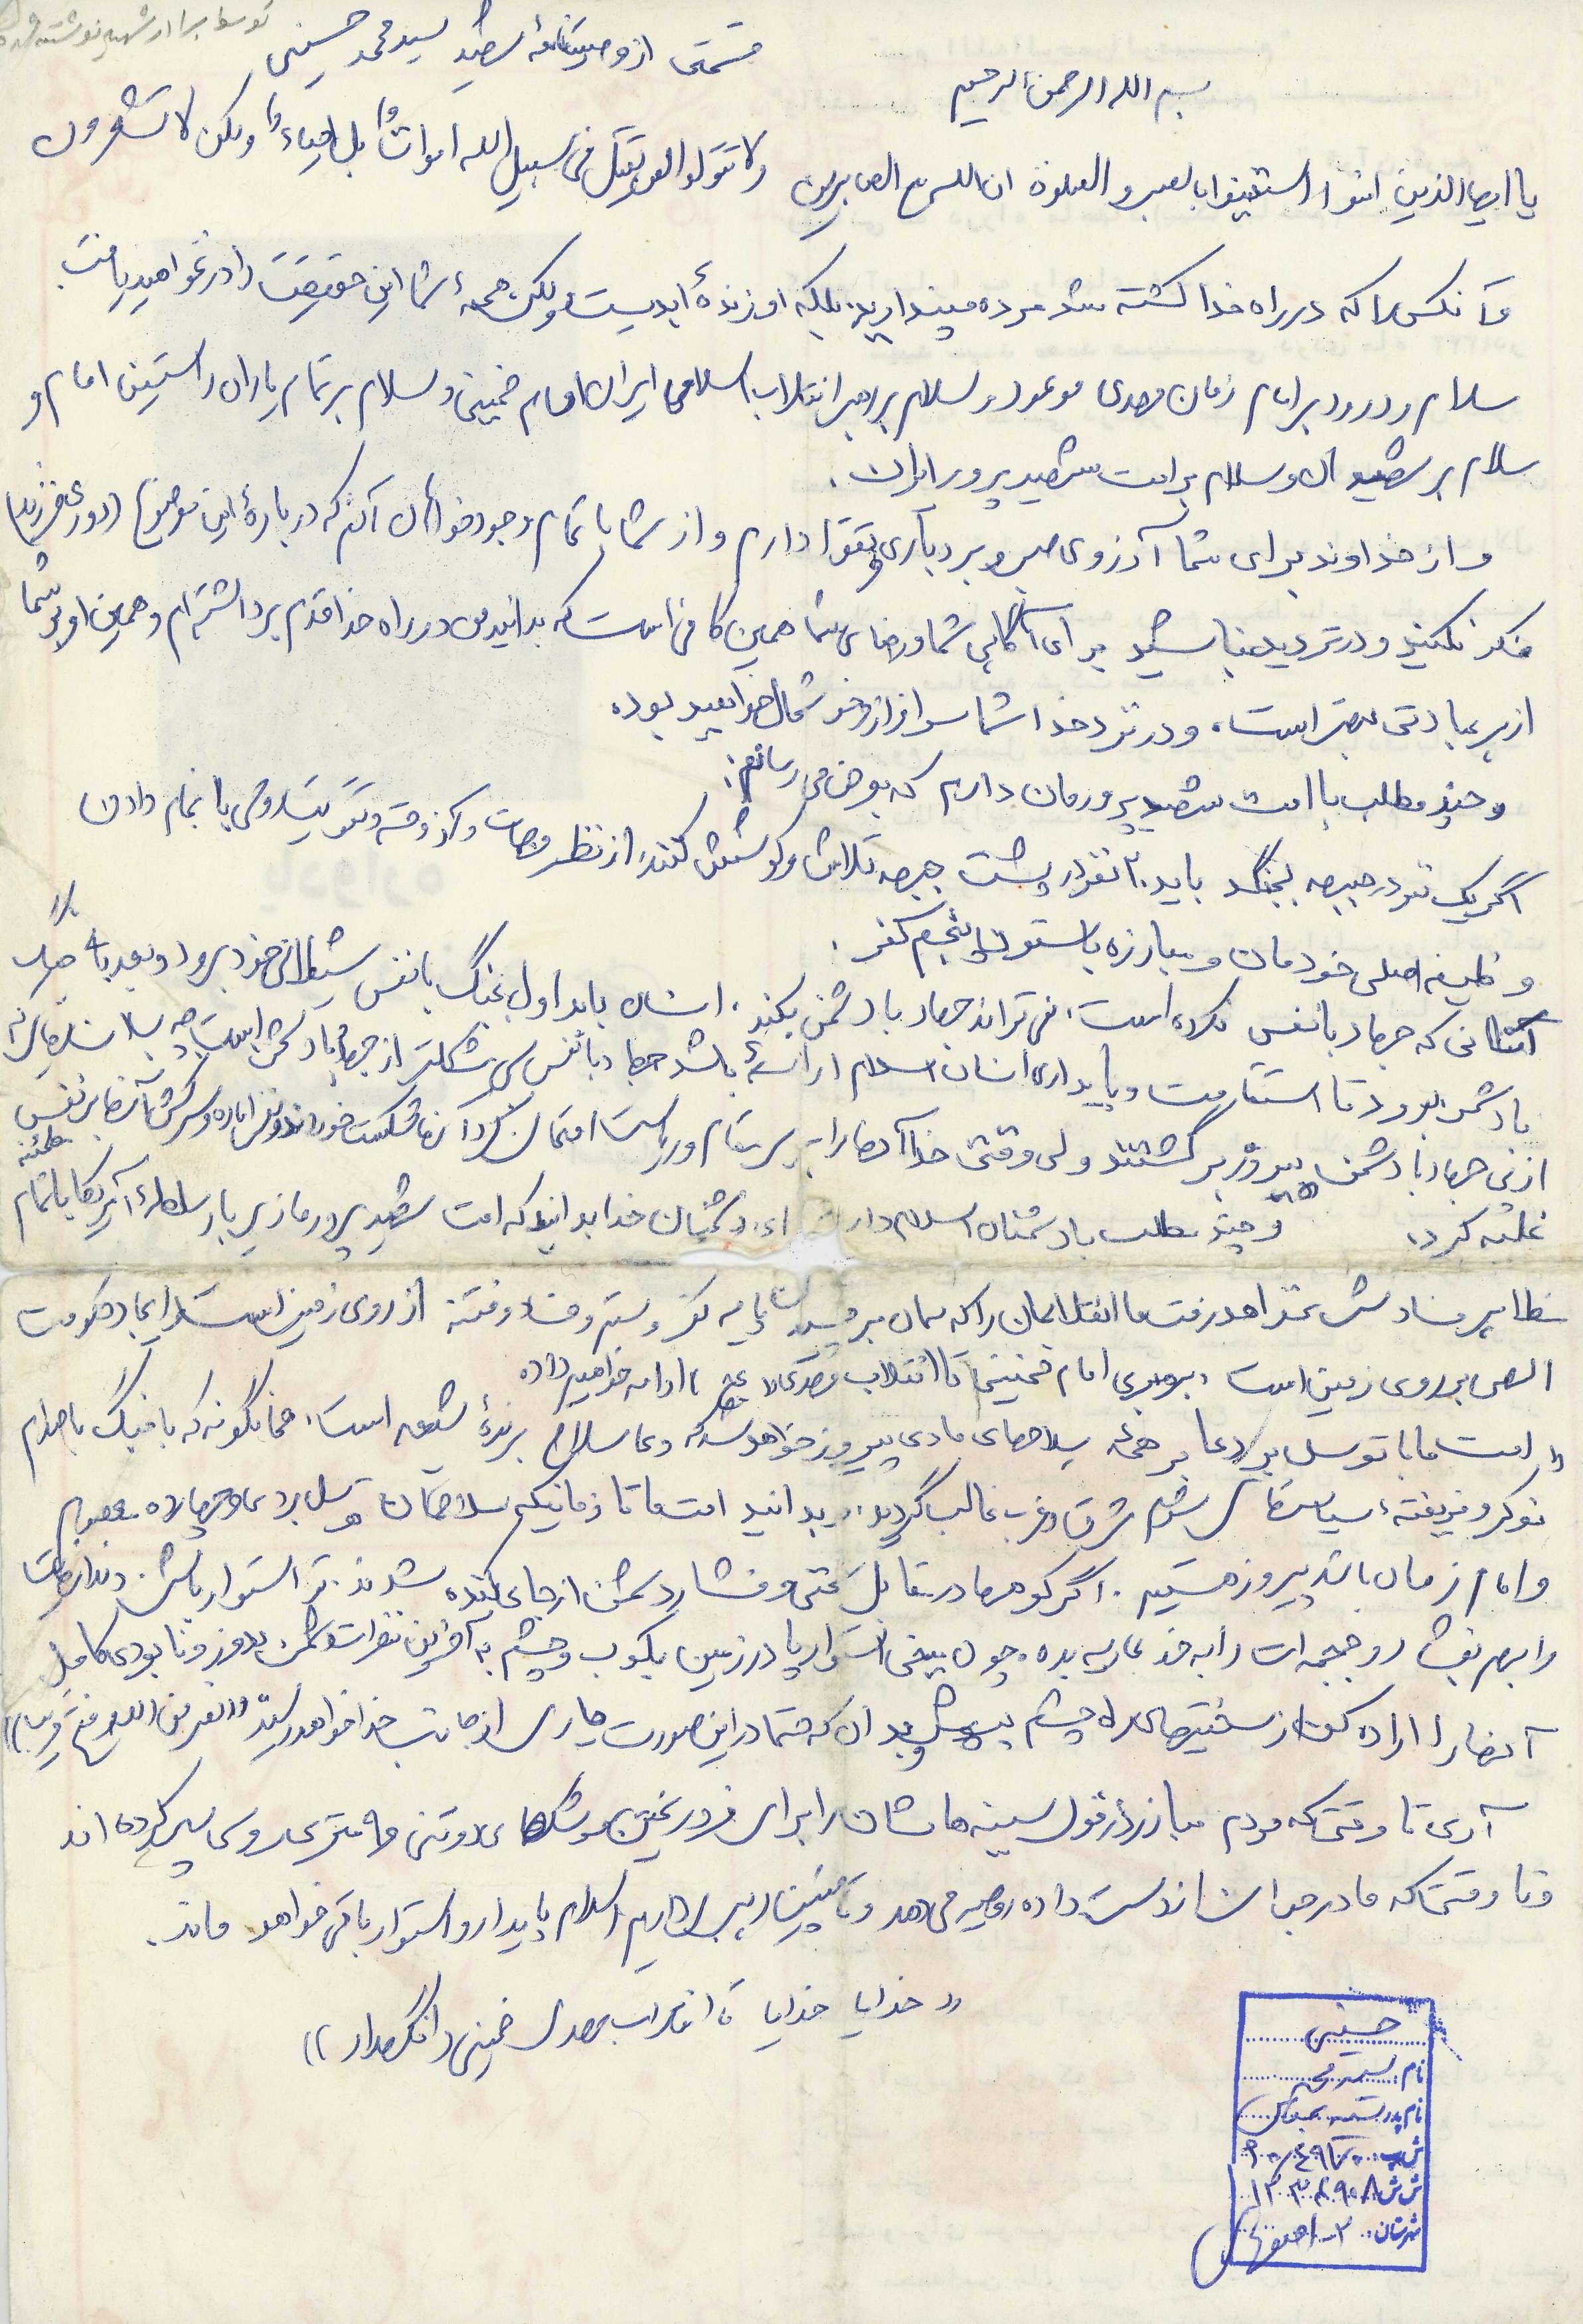 توسط برادر شهید نوشته شده
قسمتی از وصیتنامهٔ شهید سید محمد حسینی
بسم الله الرحمن الرحیم
یا ایها الذین امنوا استعینوا بالصبر و الصلوة ان الله مع الصابرین ولا تقولوا لمن یقتل فی سبیل الله امواتاً بل احیاءٌ ولکن لا تشعرون
و آنکس را که در راه خدا کشته شد مرده مپندارید، بلکه او زندهٔ ابدیست ولیکن همهٔ شما این حقیقت را در نخواهید یافت
سلام و درود بر امام زمان مهدی موعود و سلام بر رهبر انقلاب اسلامی ایران امام خمینی و سلام بر تمام یاران راستین امام و
سلام بر شهیدان و سلام بر امت شهید پرور ایران.
و از خداوند برای شما آرزوی صبر و بردباری و تقوا دارم و از شما با تمام وجود خواهان آنم که در بارهٔ این موضوع (دوری فرزند)
فکر نکنید و در تردید نباشید برای آگاهی شما و رضای شما همین کافی است که بدانید من در راه خدا قدم برداشته‌ام و همین او برای شما
از هر عبادتی بهتر است، و در نزد خدا شما سرافراز و خوشحال خواهید بود.
و چند مطلب با امت شهید پرورمان دارم که بعرض می‌رسانم:
اگر یک نفر در جبهه بجنگد باید ۲۰ نفر در پشت جبهه تلاش و کوشش کنند، از نظر مهمات و آذوقه و تقویت روحی با انجام دادن
وظیفه اصلی خودمان و مبارزه با ستون پنجم کفر.
کسانی که جهاد با نفس نکرده است، نمی‌تواند جهاد با دشمن بکند. انسان باید اول بجنگ با نفس شیطانی خود برود و بعد به جنگ
با دشمن برود تا استقامت و پایداری انسان اسلام ارائه باشد جهاد با نفس بسی مشکلتر از جهاد با دشمن است چه بسا انسانهائی که
از نبی جهاد با دشمن پیروز برگشتند ولی وقتی خدا آنها را به مقام و ریاست امتحان کرد آنها شکست خوردند و نفس اماره و سرکش آنها بر نفس مطمئنه
غلبه کرد. و چند مطلب با دشمنان اسلام دارم ای دشمنان خدا بدانید که امت شهید پرور ما زیر بار سلطهٔ آمریکا با تمام
مظاهر فسادش نخواهد رفت ما انقلابمان را که همان بر چیدن پایه کفر و ستم و فساد و فتنه از روی زمین است و ایجاد حکومت
الهی بر روی زمین است، برهبری امام خمینی تا انقلاب مهدی (عج) ادامه خواهیم داد.
« امت ما با توسل بر دعا بر همهٔ سلاحهای مادی پیروز خواهد شد که دعا سلاح برندهٔ شیعه است، همانگونه که با جنگ با صدام
نوکر و فریفتهٔ سیاستهای شوم شرق و غرب غالب گردید، و بدانید امت ما تا زمانیکه سلاحمان توسل بر دعا و چهارده معصوم
و امام زمان باشد پیروز هستیم. اگر کوهها در مقابل سختی و فشار دشمن از جای کنده شدند، تو استوار باش. دندانهایت
را بهم بفشار و جمجمه‌ات را به خدا عاریه بده. چون میخی استوار پا در زمین بکوب و چشم به آخرین نفرات دشمن بدوز و نابودی کامل
آنها را اراده کن، از سختیها چشم بپوش و بدان که حتما در این صورت یاری از جانب خدا خواهد رسید «نصر من الله و فتح قریب»
آری تا وقتی که مردم مبارز دزفول سینه هاشان را برای فرو ریختن موشکهای دو تنی و ۹ متری روسی سپر کرده اند
و تا وقتی که مادر جوان از دست داده روحیه می‌دهد و تا چنین رهبری داریم اسلام پایدار و استوار باقی خواهد ماند.
« خدایا خدایا تا انقلاب مهدی خمینی را نگهدار »
حسینی
نام: سید محمد
نام پدر: سید عباس
ش ش ۱۳۳۸۹۰۸
شهرستان: ۲- اصفهان